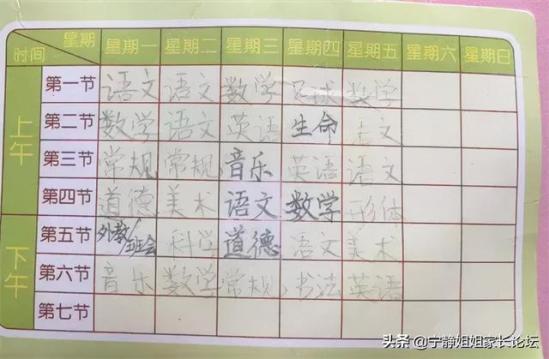 时间 星期 星期一 星期二 星期三 星期四 星期五 星期六 星期日
上午
第一节 语文 语文 数学 足球 数学
第二节 数学 语文 英语 生命 语文
第三节 常规 常规 音乐 英语 语文
第四节 道德 美术 语文 数学 形体
下午
第五节 外教/班会 科学 道德 语文 美术
第六节 音乐 数学 常规 书法 英语
第七节
头条 @宁静姐姐家长论坛